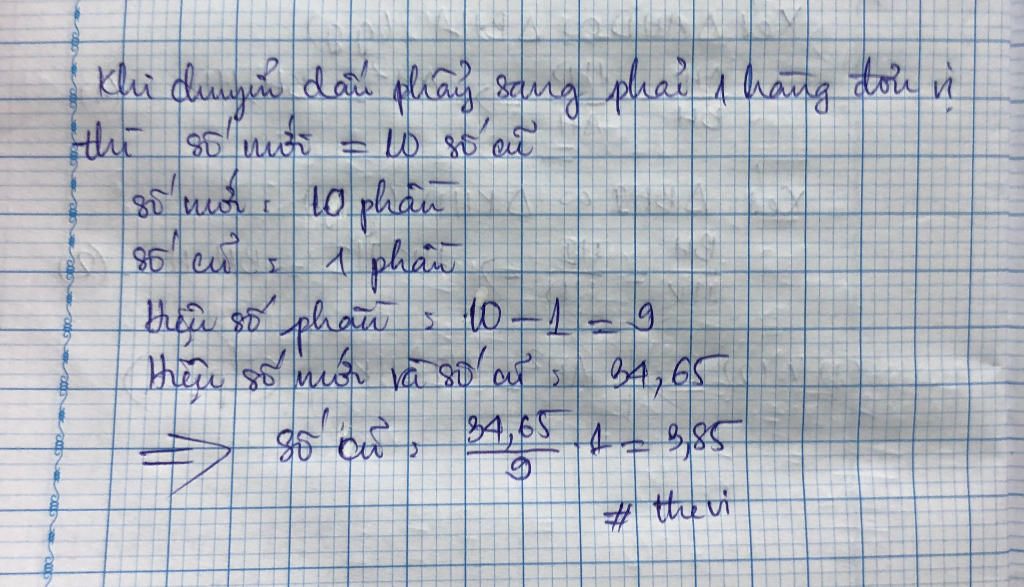 Khi chuyển dấu phẩy sang phải 1 hàng đơn vị
thì số mới = 10 số cũ
số mới : 10 phần
số cũ : 1 phần
Hiệu số phần : 10 - 1 = 9
Hiệu số mới và số cũ : 34,65
⇒ số cũ : 34,65/9 . 1 = 3,85
# thevi